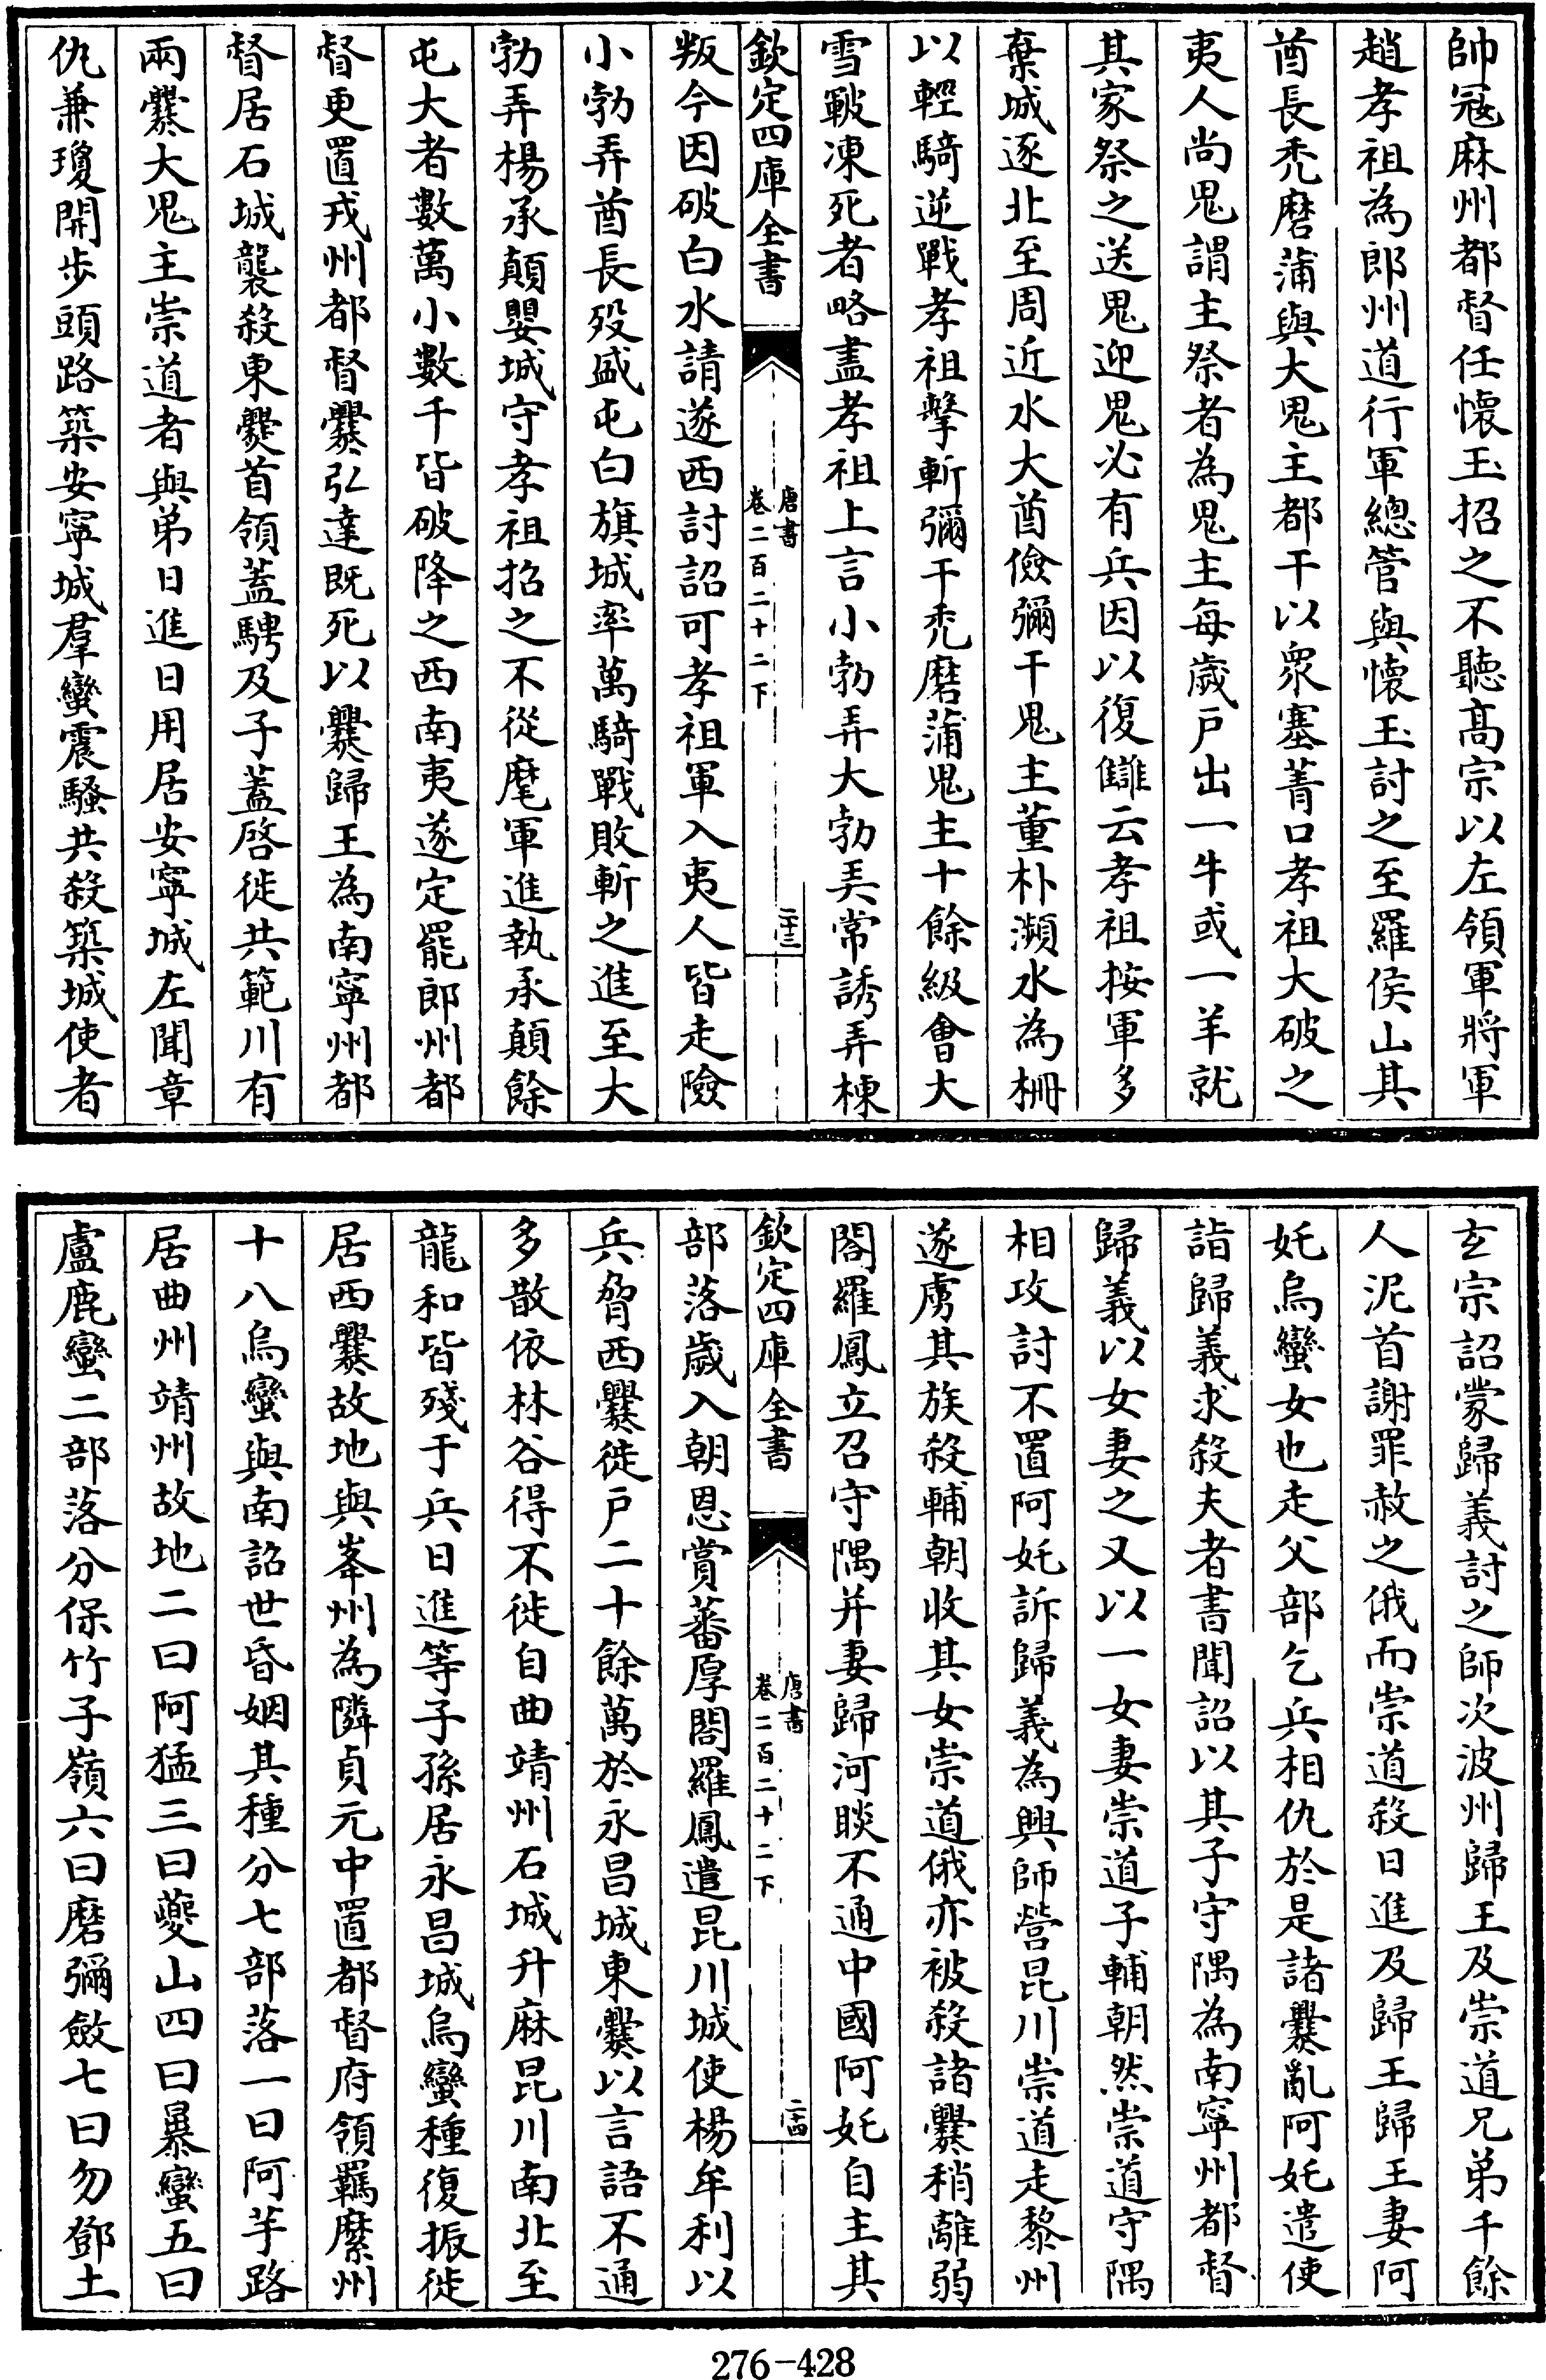 帥冦麻州都督任懐玉招之不聽髙宗以左領軍將軍
趙孝祖為郎州道行軍總管與懐玉討之至羅侯山其
酋長禿磨蒲與大鬼主都干以衆塞菁口孝祖大破之
夷人尚鬼謂主祭者為鬼主每歲户出一牛或一羊就
其家祭之送鬼迎鬼必有兵因以復讎云孝祖按軍多
棄城逐北至周近水大酋儉彌干鬼主董朴瀕水為柵
以輕騎逆戰孝祖擊斬彌干禿磨蒲鬼主十餘級會大
雪皸凍死者略盡孝祖上言小勃弄大勃弄常誘弄棟
欽定四庫全書
唐書
卷二百二十二下
二十三
叛今因破白水請遂西討詔可孝祖軍入夷人皆走險
小勃弄酋長殁盛屯白旗城率萬騎戰敗斬之進至大
勃弄楊承顛嬰城守孝祖招之不從麾軍進執承顛餘
屯大者數萬小數千皆破降之西南夷遂定罷郎州都
督更置戎州都督爨弘達既死以爨歸王為南寧州都
督居石城襲殺東爨首領蓋騁及子蓋啓徙共範川有
兩爨大鬼主崇道者與弟日進日用居安寧城左聞章
仇兼瓊開步頭路築安寧城羣蠻震騷共殺築城使者
玄宗詔蒙歸義討之師次波州歸王及崇道兄弟千餘
人泥首謝罪赦之俄而崇道殺日進及歸王歸王妻阿
奼烏蠻女也走父部乞兵相仇於是諸爨亂阿奼遣使
詣歸義求殺夫者書聞詔以其子守隅為南寧州都督
歸義以女妻之又以一女妻崇道子輔朝然崇道守隅
相攻討不置阿奼訴歸義為興師營昆川崇道走黎州
遂虜其族殺輔朝收其女崇道俄亦被殺諸爨稍離弱
閣羅鳳立召守隅并妻歸河睒不通中國阿奼自主其
欽定四庫全書
唐書
卷二百二十二下
二十四
部落歲入朝恩賞蕃厚閣羅鳳遣昆川城使楊牟利以
兵脅西爨徙户二十餘萬於永昌城東爨以言語不通
多散依林谷得不徙自曲靖州石城升麻昆川南北至
龍和皆殘于兵日進等子孫居永昌城烏蠻種復振徙
居西爨故地與峯州為隣貞元中置都督府領羈縻州
十八烏蠻與南詔世昏姻其種分七部落一曰阿芋路
居曲州靖州故地二曰阿猛三曰夔山四曰暴蠻五曰
盧鹿蠻二部落分保竹子嶺六曰磨彌斂七曰勿鄧土
276-428